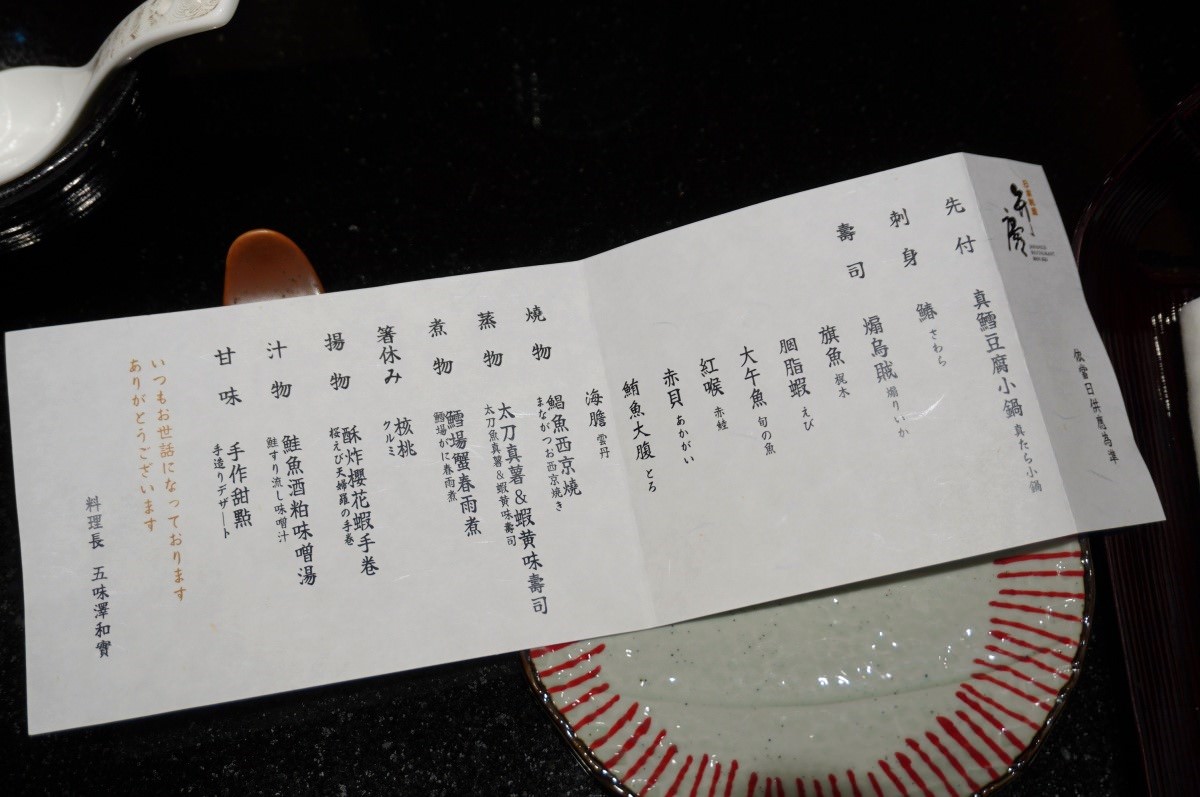 日本料理
弁慶
JAPANESE
RESTAURANT
BEN KEI
依當日供應為準
先付
真鱈豆腐小鍋 真たら小鍋
刺身
鰆 さわら
煽烏賊 煽りいか
壽司
旗魚 梶木
胭脂蝦 えび
大午魚 旬の魚
紅喉 赤鯥
赤貝 あかがい
鮪魚大腹 とろ
海膽 雲丹
燒物
鯧魚西京燒
まながつお西京焼き
蒸物
太刀真薯&蝦黄味壽司
太刀魚真薯&蝦黄味壽司
煮物
鱈場蟹春雨煮
鱈場がに春雨煮
箸休み
核桃
クルミ
揚物
酥炸櫻花蝦手巻
桜えび天婦羅の手巻
汁物
鮭魚酒粕味噌湯
鮭すり流し味噌汁
甘味
手作甜點
手造りデザート
いつもお世話になっております
ありがとうございます
料理長 五味澤和實